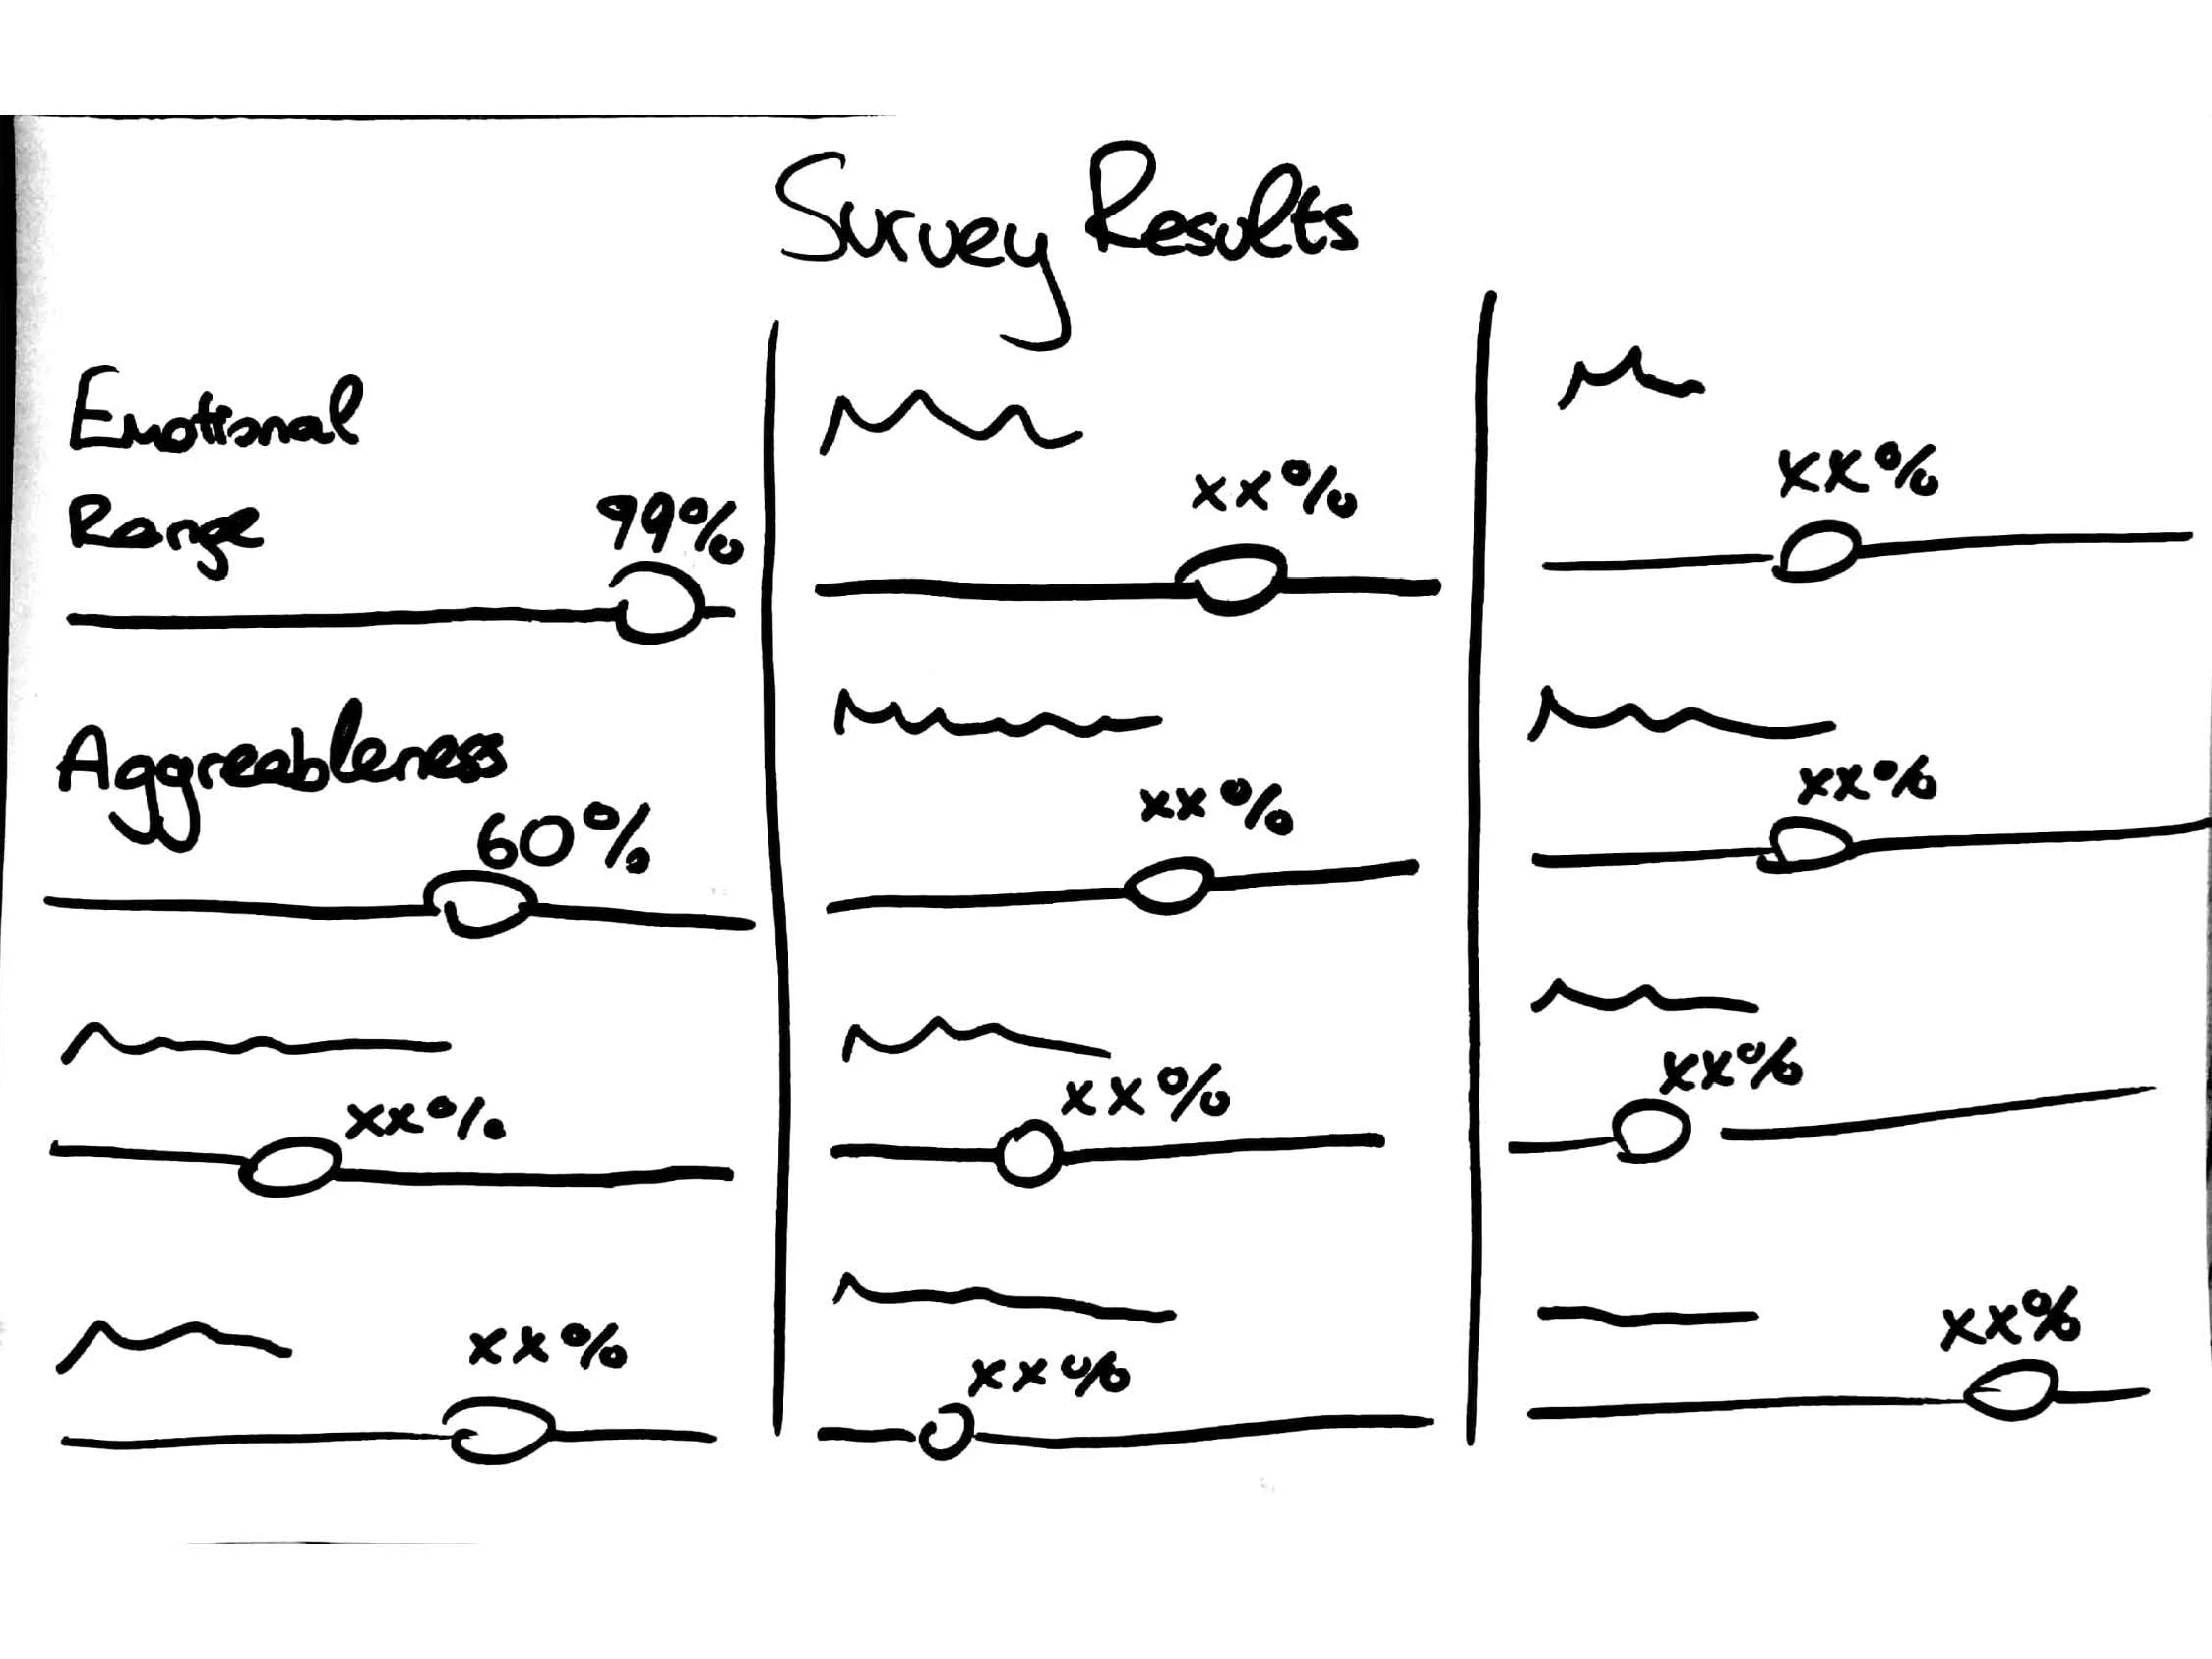 Survey Results
Emotional
Range
99%
Aggreableness
60%
xx%
xx%
xx%
xx%
xx%
xx%
xx%
xx%
xx%
xx%